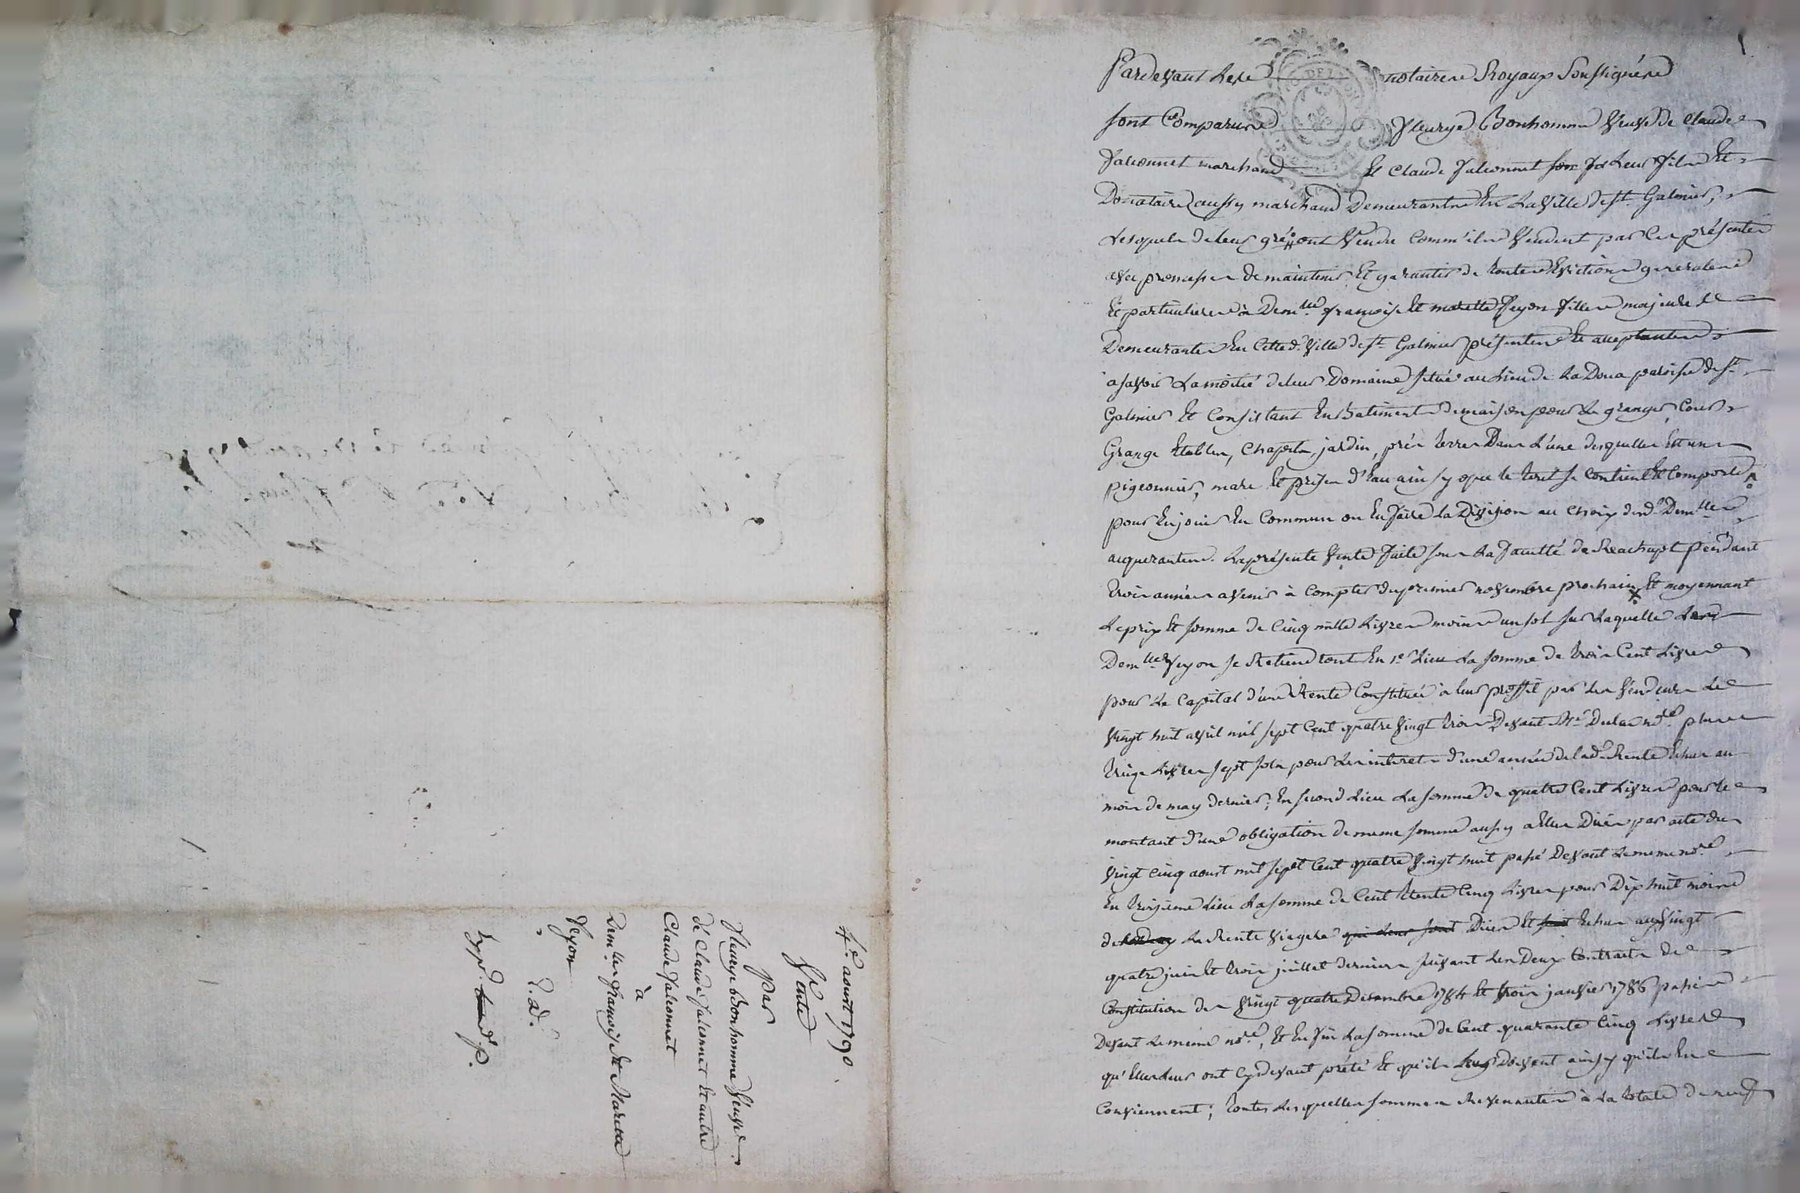 4e. aoust 1790.
Vente
par
Fleurye Bonhomme Veuve
de Claude Falconnet Et autre
Claude Falconnet
à
Demlles françoise Et Mariette
Veyon
Exp.
Pardevant Les notaires Royaux Soussignés
sont Comparus Fleurye Bonhomme Veuve de Claude
Falconnet marchand Et Claude Falconnet Leur fils Et
Donataire aussy marchand Demeurants En La Ville de St. Galmier,
Lesquels de leur gré ont Vendu Comm'ils Vendent par Ces présentes
avec promesse de maintenir Et garantir de toutes Evictions generales
Et particulieres à Demlles françoise Et mariette Veyon filles majeures
Demeurantes En Cette d. Ville de St. Galmier présentes Et acceptantes
a savoir La moitié de leur Domaine situé au Lieu de La Doua paroisse de St.
Galmier Et Consistant En Batiments de maison pour Le granger, Cour,
Grange Etables, Chapits, jardin, prés terres Dans L'une desquelles Est un
pigeonnier, mare Et prises d'Eau ainsy que le tout se Contient Et Comporte
pour En jouir En Commun ou En faire La Division au Choix desd. Demlles
acquerantes. La présente Vente faite sous La faculté de Reachapt pendant
trois années a Venir à Compter du premier novembre prochain Et moyennant
Le prix Et somme de Cinq mille Livres moins un sol sur Laquelle Lesd.
Demlles Veyon se Retiendront En 1er Lieu La somme de trois Cent Livres
pour Le Capital d'une Rente Constituée à leur proffit par Les Vendeurs Le
Vingt huit avril mil sept Cent quatre Vingt trois Devant Me. nre. plus
treize Livres sept sols pour Les interets d'une année de lad. Rente Echue au
mois de may dernier; En second Lieu La somme de quatre Cent Livres pour le
montant d'une obligation de meme somme aussy a Elles Due par acte du
Vingt Cinq aoust mil sept Cent quatre Vingt huit passé Devant Le meme nre.
En troisieme Lieu La somme de Cent trente Cinq Livres pour Dix huit mois
de La Rente Viagere qui leur sont Dues Et Echus aux Vingt
quatre juin Et trois juillet derniers suivant Les Deux Contrats de
Constitution des Vingt quatre Decembre 1784 Et trois janvier 1786 passés
Devant Le meme nre., Et Enfin La somme de Cent quarante Cinq Livres
qu'Elles leur ont Cydevant prété Et qu'ils Leur Doivent ainsy qu'ils En
Conviennent; toutes Lesquelles sommes Revenantes à La totale de neuf